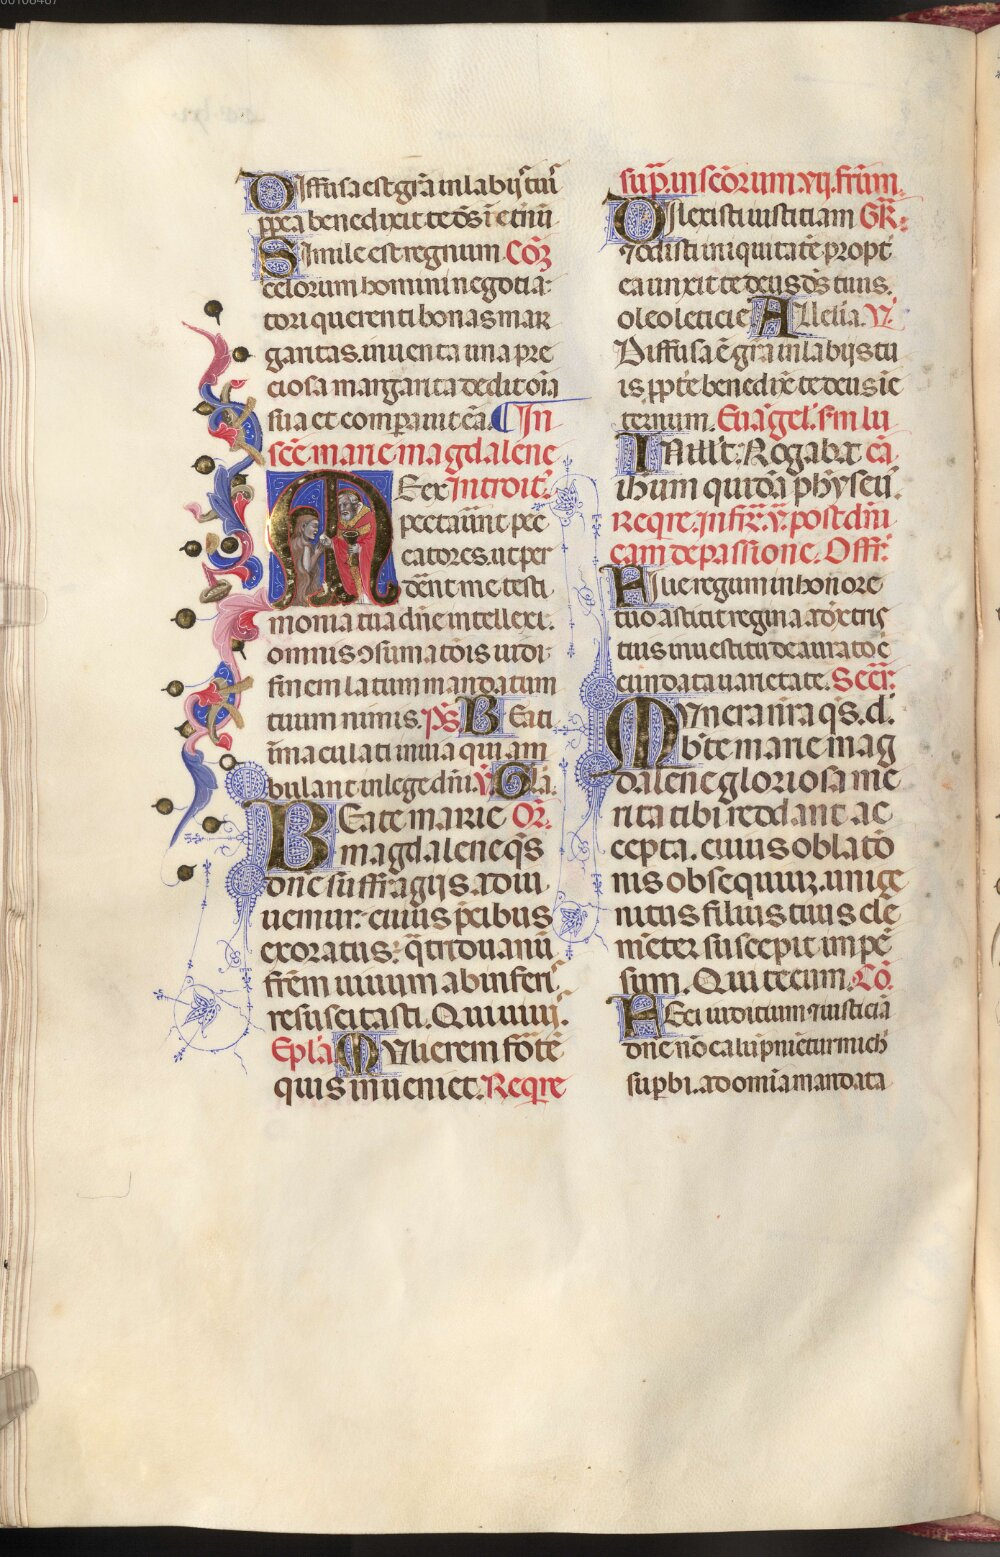 Diffusa est gr̃a in labijs tuis
pp̃ea benedixit te dš ietnũ
Simile est regnum Cõ
celorum homini negotia-
tori querenti bonas mar
garitas. inuenta una pre
ciosa margarita dedit oĩa
sua et comparauit eã. In
scẽ marie magdalene
ME ex Introit.
pectauũt pec
catores. ut per
dẽnt me testi
monia tua dñe intellexi.
omnis ɔsumatõis uidi
finem latum mandatum
tuum nimis. Pš Beati
ĩmaculati in uia qui am
bulant in lege dñi. V̄ Gl̃a.
BEate marie Or̃.
magdalene qš
dñe suffragijs adiu
uemur: cuius p̃cibus
exoratus: q̃triduanũ
fr̃em uiuum ab inferis
resuscitasti. Qui uiuis.
Ep̃la Mulierem fortẽ
quis inueniet. Reqre
sup̃. in scõrum. vij. fr̃um.
Dilexisti iustitiam GR̃.
⁊ odisti iniquitatẽ propt
ea unxit te deus dš tuus.
oleo leticie Alleluia. V̄.
Diffusa ẽ gr̃a in labijs tu
is ppt̃e benedix̃ te deus i e
ternum. Euãgel. sm̃ lu
In ill̃ t. Rogabat cã
ihum quidã physeũ.
Reqre. in fr̃. v̄. post dñi
cam de passione. Offr̃.
Filie regum in honore
tuo astitit regina adextris
tuis in uestitu deaurato c̃
cumdata uarietate. Secr̃.
Munera nr̃a qš. d.
b̃te marie mag
dalene gloriosa me
rita tibi reddant ac
cepta. cuius oblatõ
nis obsequium. unige
nitus filius tuus cle
mẽter suscepit impẽ
sum. Qui tecum. Cõ.
FEci iudicium ⁊ iusticiã
dñe nõ calũpniẽtur michi
sup̃bi. ad omĩa mandata